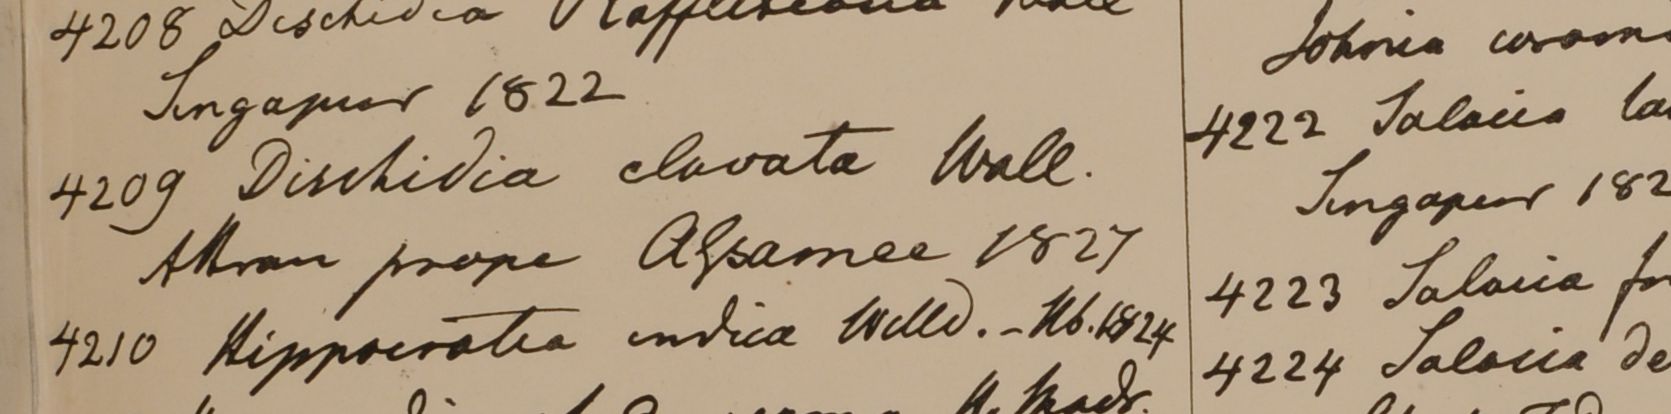 4208 Dischidia Rafflesiana Wall
Singapur 1822
4209 Dischidia clavata Wall.
Attran prope 1827
4210 Hippocratea indica Willd. - Hb. 1824
H. Madr.
Johnia corom
4222 Salacia la
Singapur 182
4223 Salacia fo
4224 Salacia de